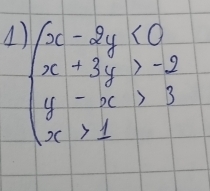 1) { x - 2y < 0
x + 3y > -2
y - x > 3
x > 1